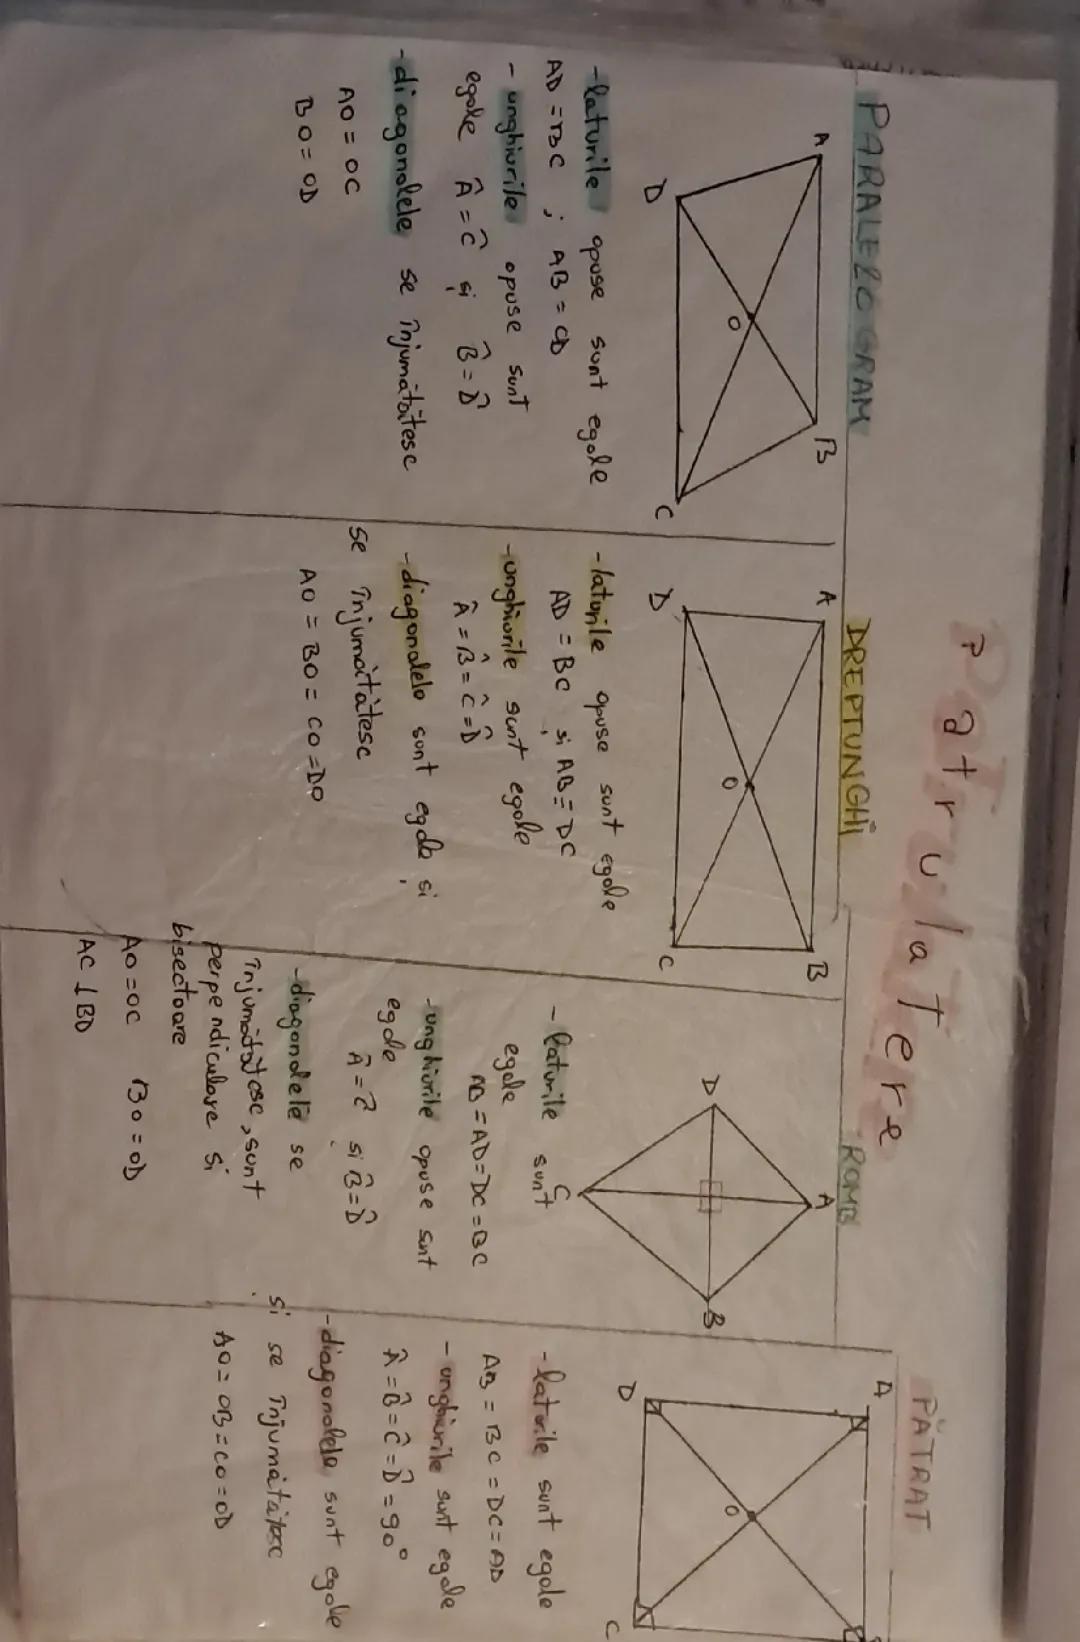 Patrulatere
PARALELOGRAM
A
B
O
D
C
-laturile opuse sunt egale
AD = BC ; AB = CD
- unghiurile opuse sunt
egale Â = Ĉ și B̂ = D̂
-diagonalele se înjumătățesc
AO = OC
BO = OD
DREPTUNGHI
A
B
O
D
C
-laturile opuse sunt egale
AD = BC și AB = DC
-unghiurile sunt egale
Â = B̂ = Ĉ = D̂
-diagonalele sunt egale și
se înjumătățesc
AO = BO = CO = DO
ROMB
A
D
B
C
- laturile sunt
egale
AB = AD = DC = BC
-unghiurile opuse sunt
egale
Â = Ĉ și B̂ = D̂
-diagonalele se
înjumătățesc, sunt
perpendiculare și
bisectoare
AO = OC BO = OD
AC ⊥ BD
PĂTRAT
A
O
D
C
-laturile sunt egale
AB = BC = DC = AD
- unghiurile sunt egale
Â = B̂ = Ĉ = D̂ = 90°
-diagonalele sunt egale
și se înjumătățesc
AO = OB = CO = OD